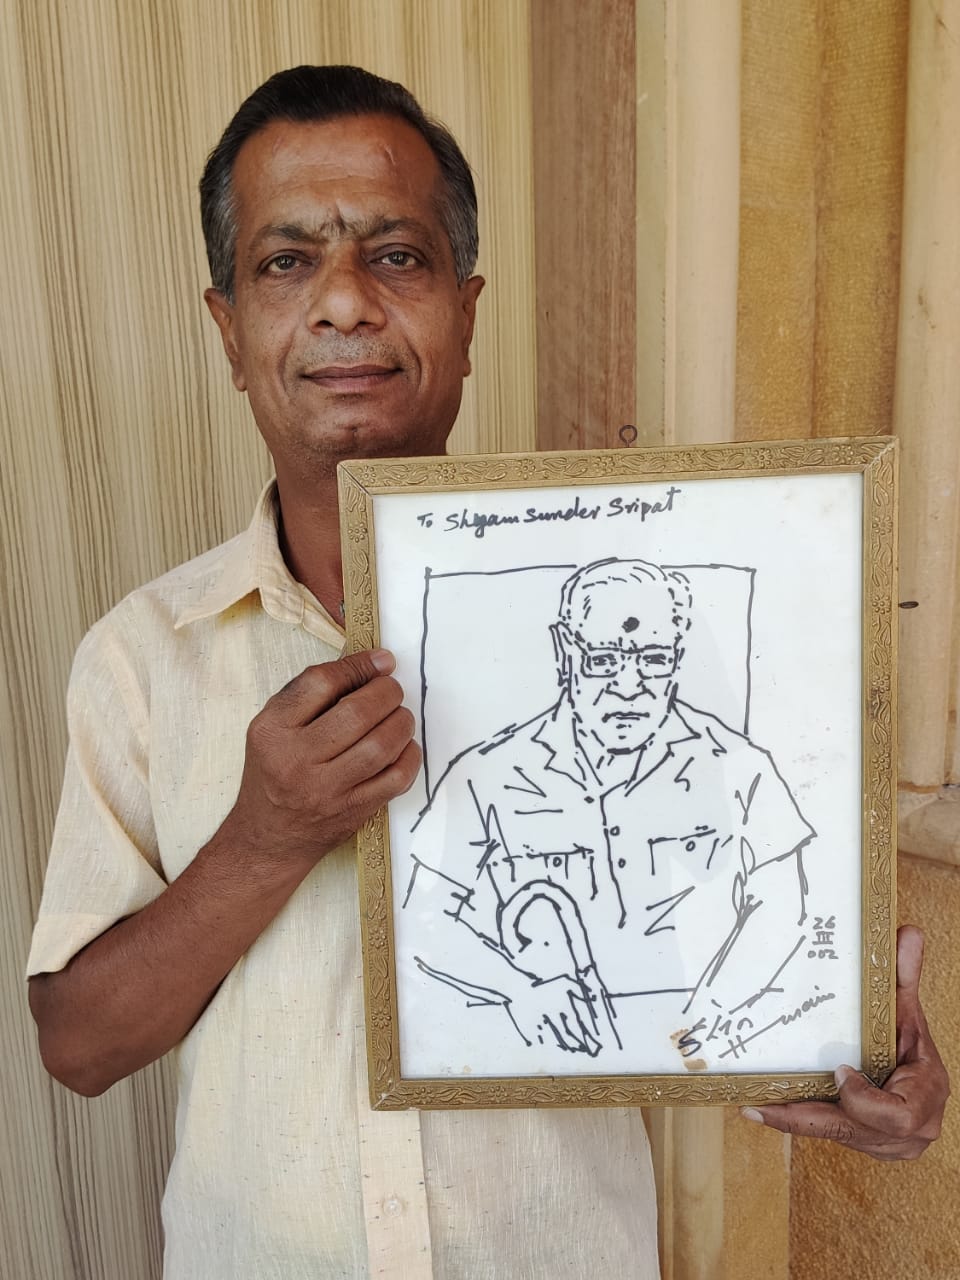 To Shyam Sunder Sripat
26
III
002